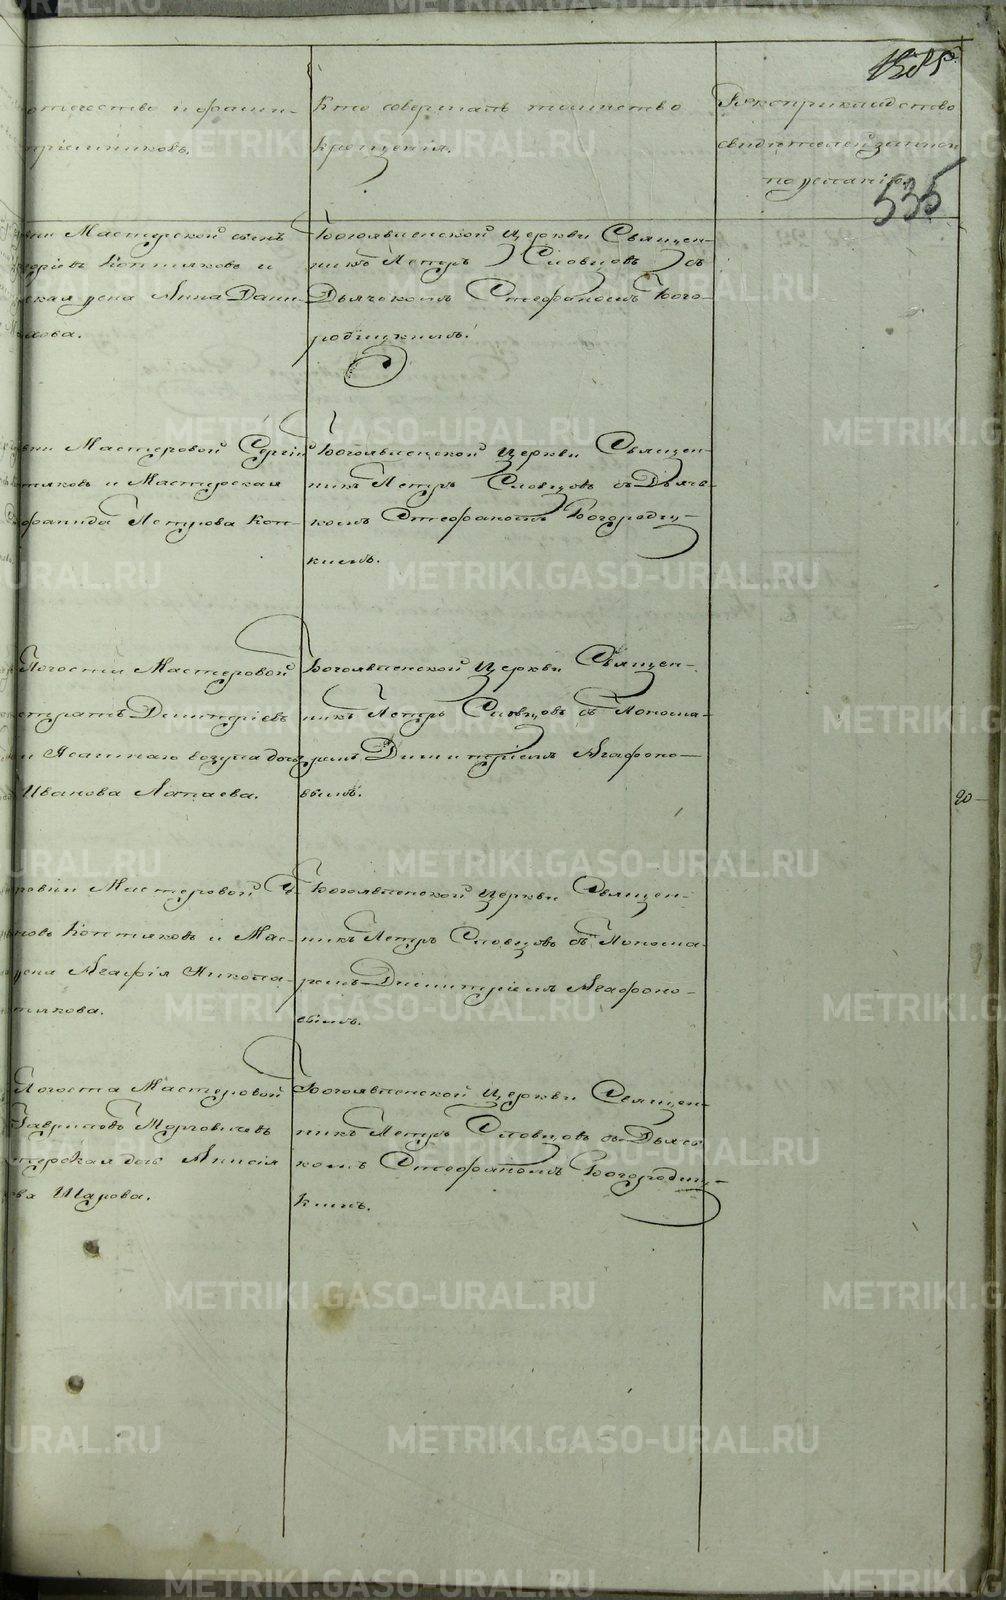 535
отчество и фами-
пріемниковъ.
Кто совершалъ таинство
Крещенія.
Рукоприкладство
свидѣтелей записи
по желанію.
Мастерской сынъ
Коптяковъ и
жена Анна Дани-
Богоявленской Церкви Священ-
никъ Петръ Словцовъ съ
Дьячкомъ Стефаномъ Бого-
родицкимъ.
Мастеровой Сергій
тяковъ и Мастерская
Петрова Коп-
Богоявленской Церкви Священ-
никъ Петръ Словцовъ съ Дьяч-
комъ Стефаномъ Богородиц-
кимъ.
Погоста Мастеровой
Димитріевъ
Иванова Лопаева.
Богоявленской Церкви Священ-
никъ Петръ Словцовъ съ Понома-
ремъ Димитріемъ Агафоно-
вымъ.
20
Мастеровой
новъ Коптяковъ и Мас-
жена Агафія Никола-
тякова.
Богоявленской Церкви Священ-
никъ Петръ Словцовъ съ Понома-
ремъ Димитріемъ Агафоно-
вымъ.
Погоста Мастеровой
Гавриловъ
терская дочь Анисія
ва Шарова.
Богоявленской Церкви Священ-
никъ Петръ Словцовъ съ Дьяч-
комъ Стефаномъ Богородиц-
кимъ.
METRIKI.GASO-URAL.RU